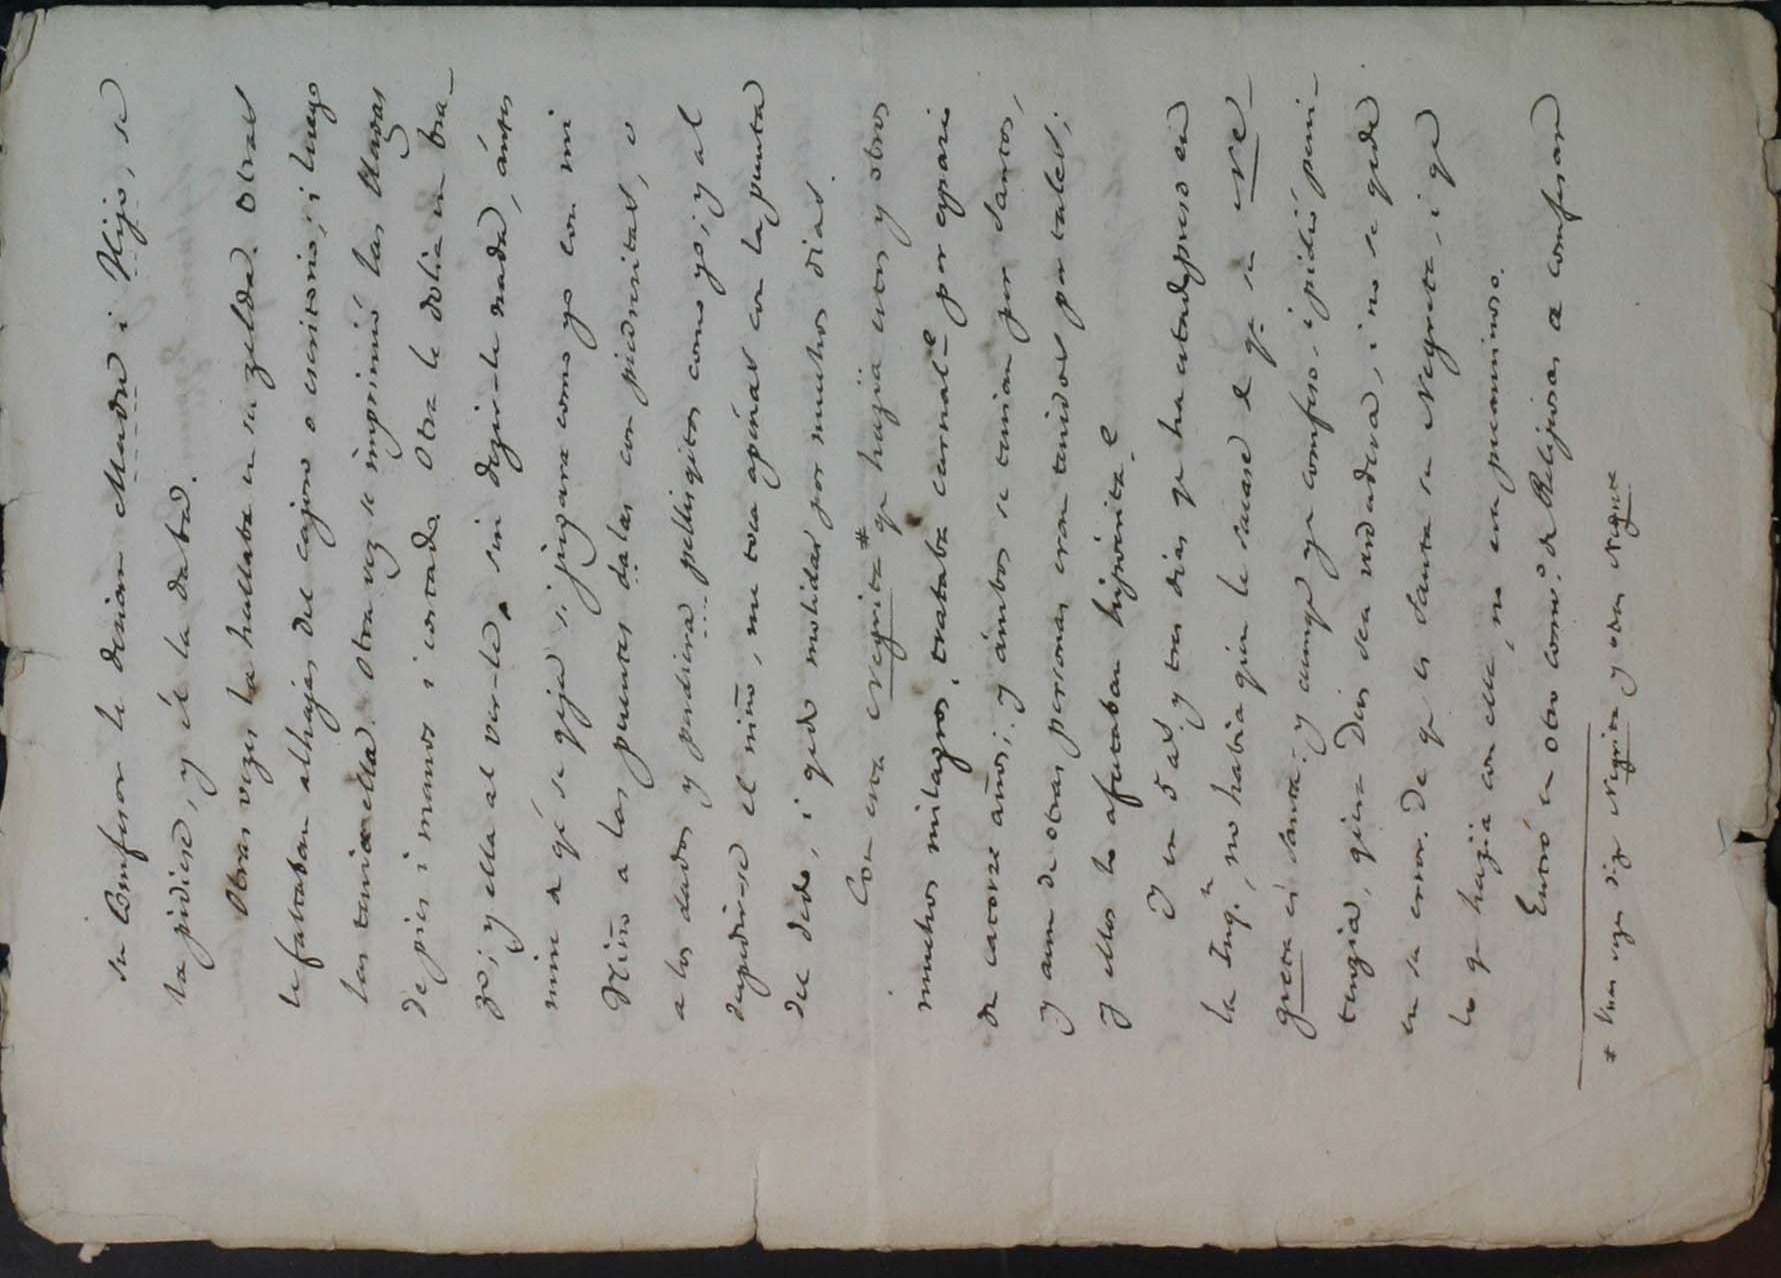 su Confesor le decian Madre i Hijo, se
la pidiese, y él la daba.
Otras vezes la hallaba en su zelda. Otras
le faltaban alhajas del cajon o escritorio, i luego
las tenia ella. Otra vez se imprimió las llagas
de pies i manos i costado. Otra le dolia un bra-
zo; y ella al ver-le, sin dezir-le nada, ántes
mire de qé se qeja si jugara como yo con mi
Niño a las puentes dalas con piedresitas, o
a los dados y perdiera pelluqitos como yo; y al
despedir-se el niño, me toca apénas con la punta
del dedo, i qedo molidas por muchos dias.
Con esta Negrita # qe hazia estos y otros
muchos milagros, trataba carnal-e por espazio
de catorze años; y ámbos se tenian por Santos,
y aun de otras personas eran tenidos por tales;
y ellos lo afectaban hipócrita-e
Y en 5 as y tres dias qe ha estado preso en
la Inq.n, no habia qien le sacase de qe su Ne-
greta es santa: y aunqe ya confeso, i pidió peni-
tenzia, qiera Dios sea verdadera, i no se qede
en su error. De qe es Santa su Negreta, i qe
lo qe hazia con ella, no era pecaminoso.
Entró en otro conv.o de Relijiosas a confesar
# Unas vezes dize Negrita y otras Negreta